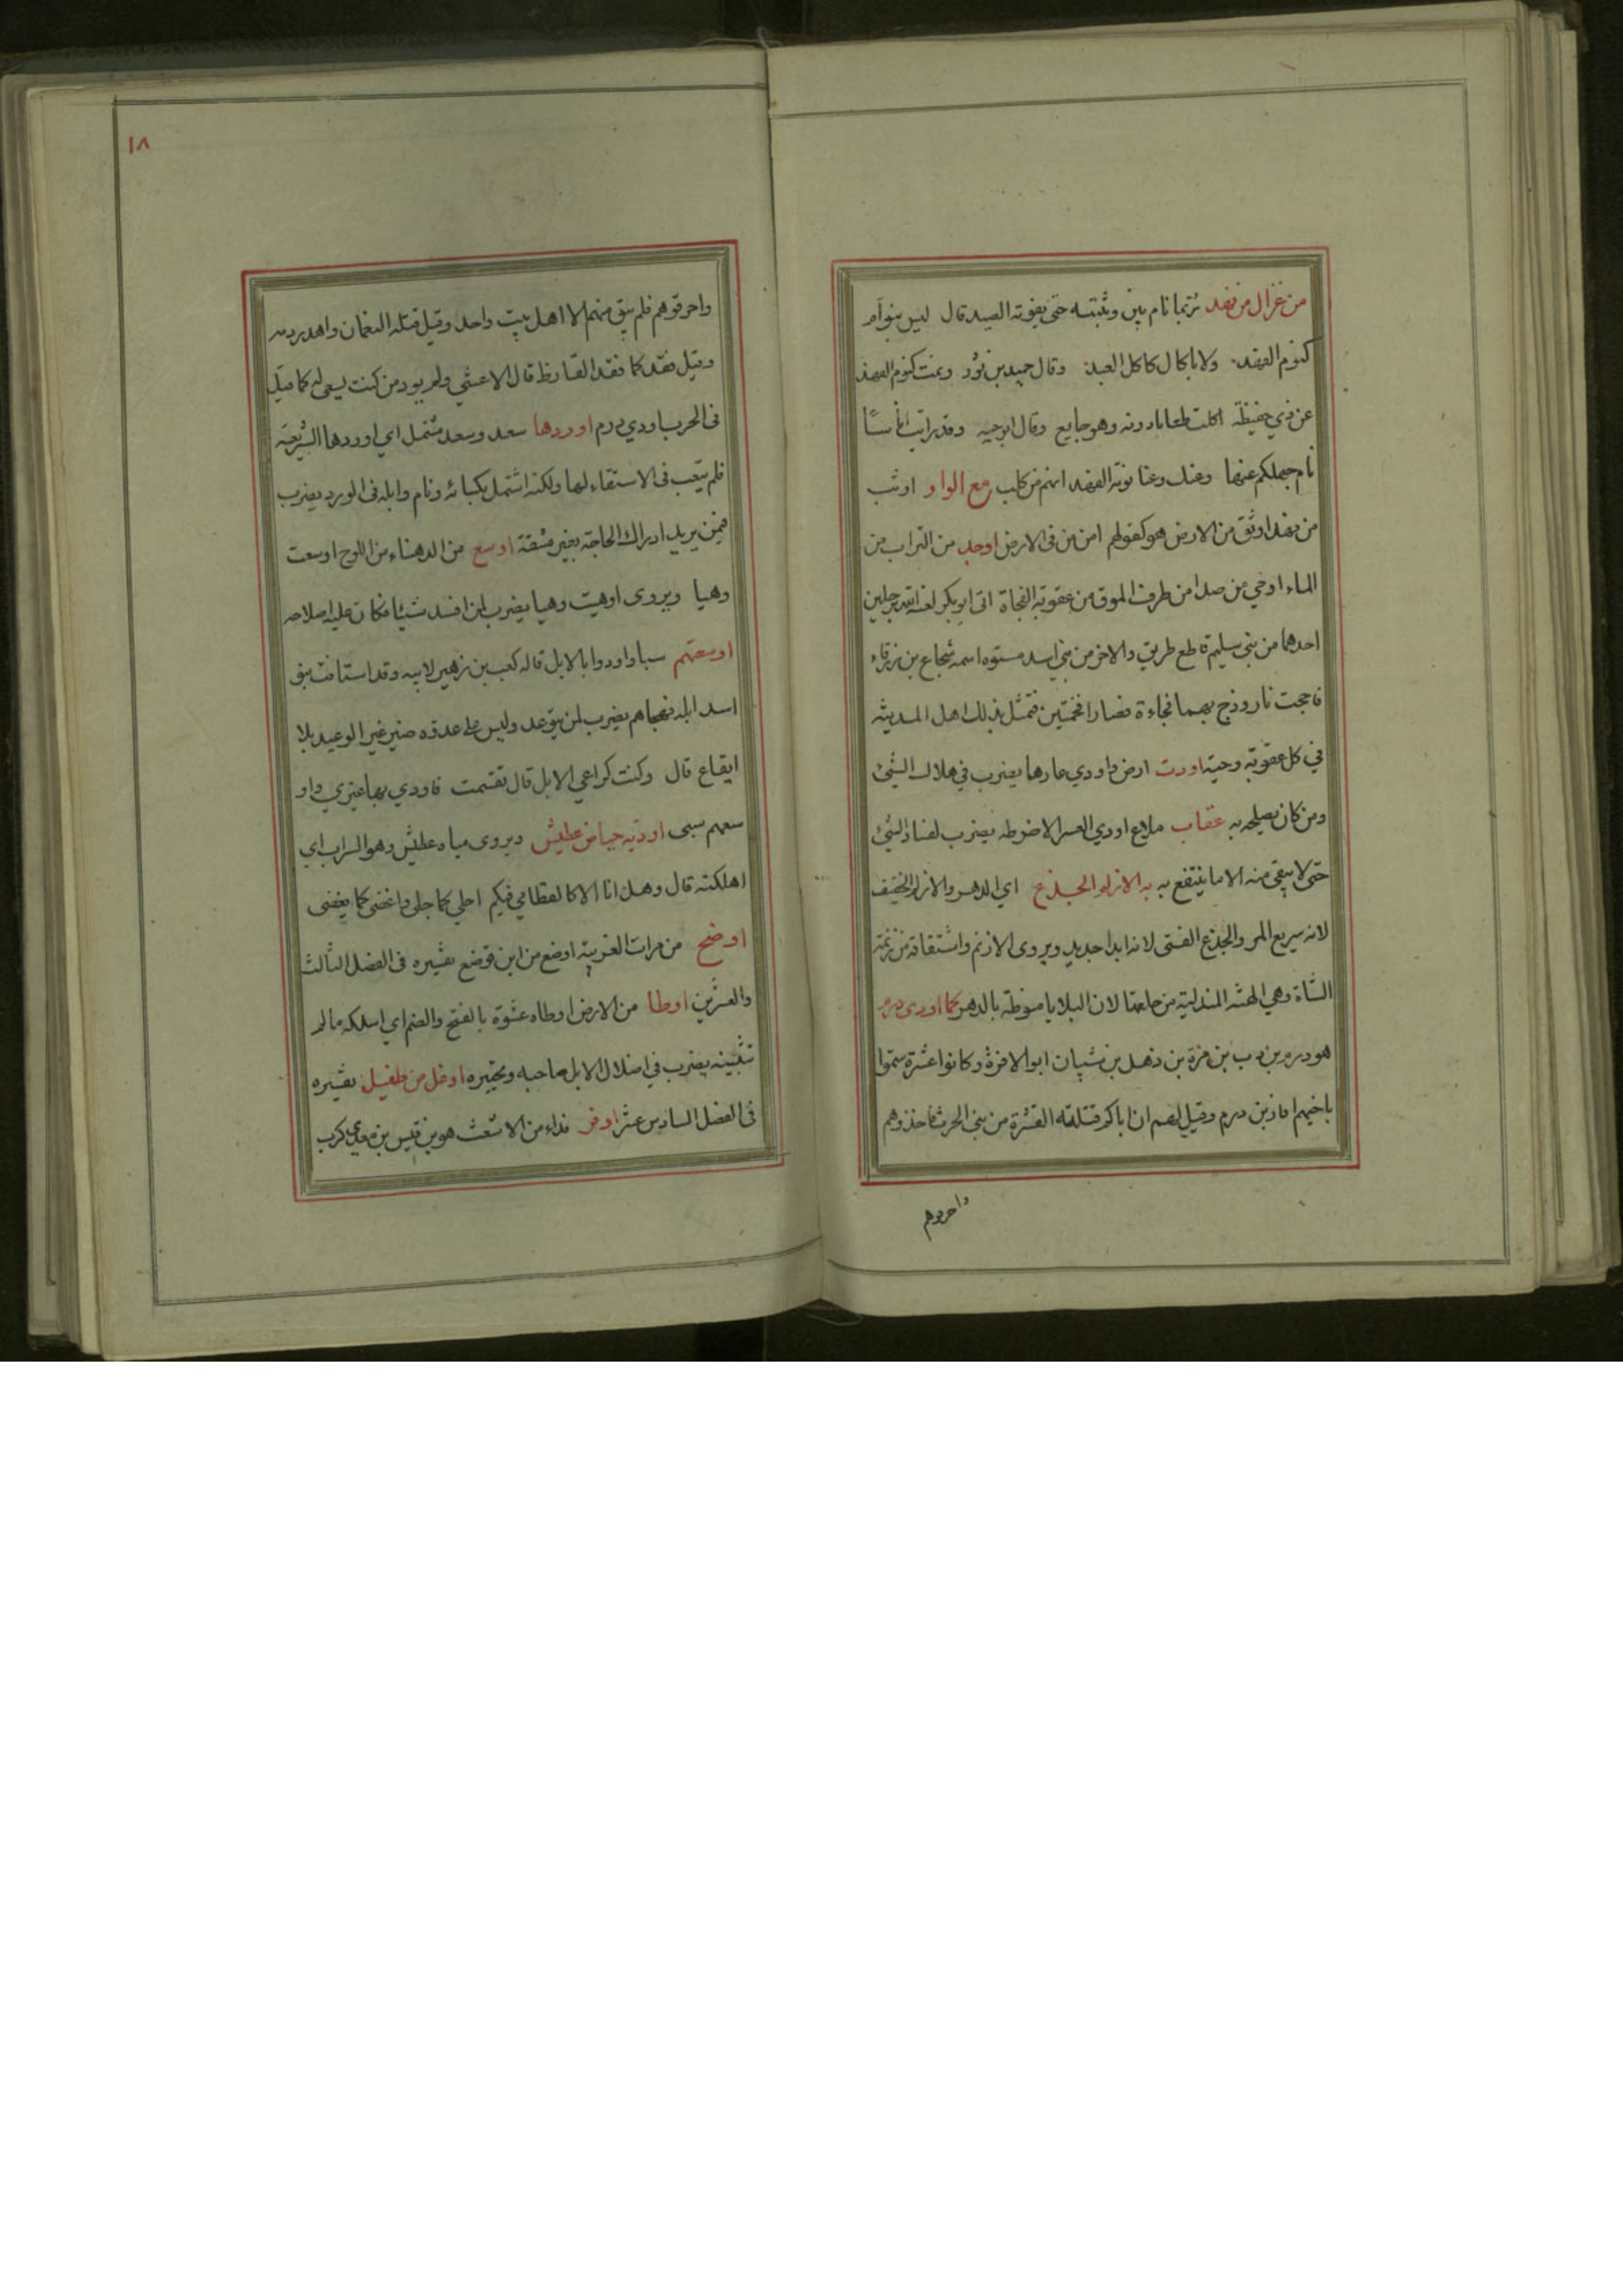 من غزال من فهد ربما نام بين وثبتيه حتى يفوته الصيد قال ليس بنوام
كنوم الفهد ولا باكال كاكل العبد وقال حميد بن ثور ونمت كنوم الفهد
عن ذي حفيظة اكلت طعاما دونه وهو جايع وقال ابو حيه وقد رايت اناسًا
نام جهلكم عنها وعنا نومة الفهد انهم من كلب مع الواو اوثب
من فهد اوثق من الارض هو كقولهم امن من في الارض اوجد من التراب من
الماء اوحي من صدا من طرف الموق من عقوبة الفجاة اتى ابو بكر برجلين
احدهما من بني سليم قاطع طريق والاخر من بني اسد اسمه شجاع بن زرقاء
فاججت نار وزج بهما فجاءة فصارا فحمتين فتمثل بذلك اهل المدينه
في كل عقوبة وحية اودت ارض واودي عارها يضرب في هلاك الشئ
ومن كان يصلحه به عقاب ملاع اودي العير الا ضرطه يضرب لفساد الشئ
حتى لا يبقى منه الا ما ينتفع به به الازلم الجذع اي الدهر والازلم الخفيف
لانه سريع المر والجذع الفتى لانه ابدا جديد ويروى الازنم واشتقاقه من زنمة
الشاة وهي الهنه المتدلية من حلقها لان البلايا منوطة بالدهر كما اودى درم
هو درم بن دب بن مرة بن ذهل بن شيبان ابو الافزة وكانوا عشرة سموا
باخيهم افاز بن درم وقيل لهم ان اباكم قتلته من بني الحرث فاخذوهم
واحرقوهم
١٨
واحرقوهم فلم يبق منهم الا اهل بيت واحد وقيل قتله النعمان واهدر دمه
وقيل فقد كما فقد القارظ قال الاعشى ولم يود من كنت تسعى له كما قيل
في الحرب اودي درم اوردها سعد وسعد مشتمل اي اوردها الشريعة
فلم يتعب في الاستقاء لها ولكنه اشتمل بكسائه ونام وابله في الورد يضرب
فيمن يريد ادراك الحاجة بغير مشقة اوسع من الدهناء من اللوح اوسعت
وهيا ويروى اوهيت وهيا يضرب لمن افسد شيئا فكان عليه اصلاحه
اوسعتهم سبا واودوا بالابل قاله كعب بن زهير لابيه وقد استاقت بنو
اسد ابله فهجاهم يضرب لمن يتوعد وليس على عدوه ضير غير الوعيد بلا
ايقاع قال وكنت كراعي الابل قال تقسمت فاودي بها غيري واو
سعهم سبى اوردته حياض عطيش ويروى مياه عطيش وهو السراب اي
اهلكته قال وهل انا الا كالقطامي فيكم اجلي كما جلى واغضى كما يغضى
اوضح من مرات الغريبة اوضع من ابن قوضع تفسيره في الفصل الثالث
والعشرين اوطا من الارض اوطاه عشوة بالفتح والضم اي اسلكه ما لم
تتبينه يضرب في اضلال الابل صاحبه وتحيره اوغل من طفيل تفسيره
في الفصل السادس عشر اوفر فداء من الاشعث هو بن قيس بن معدي كرب